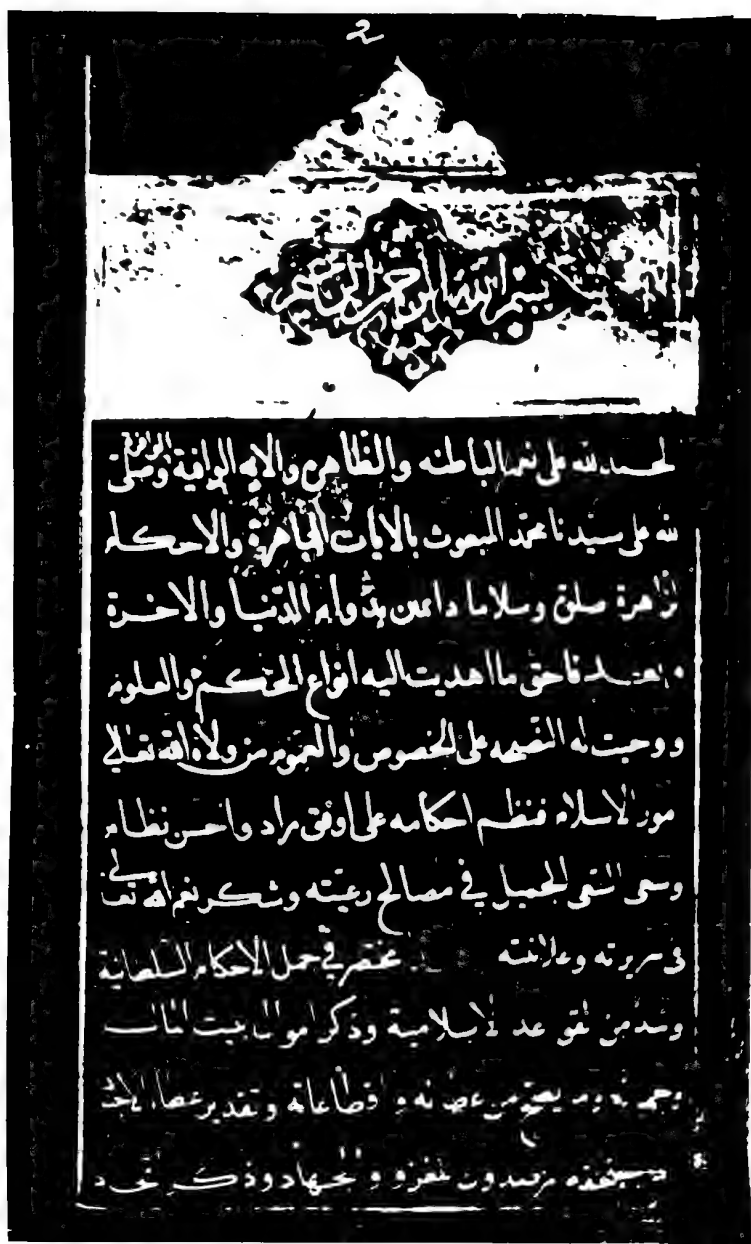 2
بسم الله الرحمن الرحيم
لحمد لله على نعمه الباطنه والظاهرة والايه الوافية الوافرة وصلى
لله على سيدنا محمد المبعوث بالايات الباهرة والاحكام
لزاهرة صلوة وسلاما دائمين بدوام الدنيا والاخرة
وبعد فاحق ما اهديت اليه انواع الحكم والعلوم
ووجبت له النصيحه على الخصوص والعموم من ولاه الله تعالى
مور الاسلام فنظم احكامه على اوفق مراد واحسن نظام
وسعى السعى الجميل في مصالح رعيته وشكر نعم الله تعالى
فى سريرته وعلانيته مختصر في جمل الاحكام السلطانية
من لقواعد لاسلامية وذكر اموال بيت المال
وجهاته وما يصح من واقطاعاته وتقدير عطاء الاجناد
لغزو والجهاد وذكر